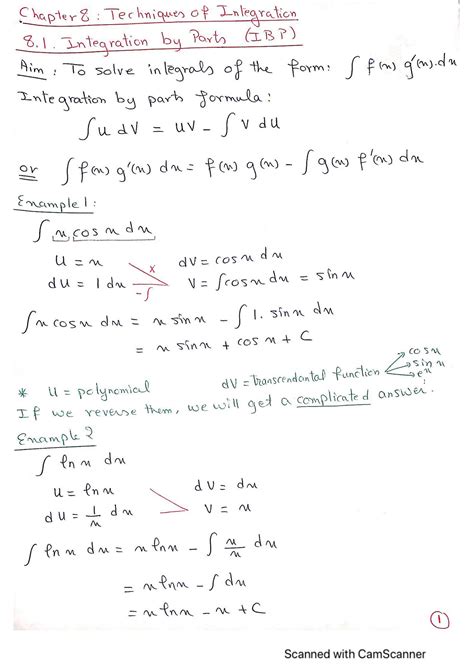 Chapter 8: Techniques of Integration
8.1. Integration by Parts (IBP)
Aim: To solve integrals of the form: ∫ f(x) g'(x).dx
Integration by parts formula:
∫ u dV = uV - ∫ V du
or ∫ f(x) g'(x) dx = f(x) g(x) - ∫ g(x) f'(x) dx
Example 1:
∫ x cos x dx
u = x dV = cos x dx
du = 1 dx x -∫ V = ∫ cos x dx = sin x
∫ x cos x dx = x sin x - ∫ 1. sin x dx
= x sin x + cos x + C
* u = polynomial dV = transcendental function cos x sin x eˣ
If we reverse them, we will get a complicated answer.
Example 2
∫ ln x dx
u = ln x dV = dx
du = 1/x dx V = x
∫ ln x dx = x ln x - ∫ x/x dx
= x ln x - ∫ dx
= x ln x - x + C
1
Scanned with CamScanner